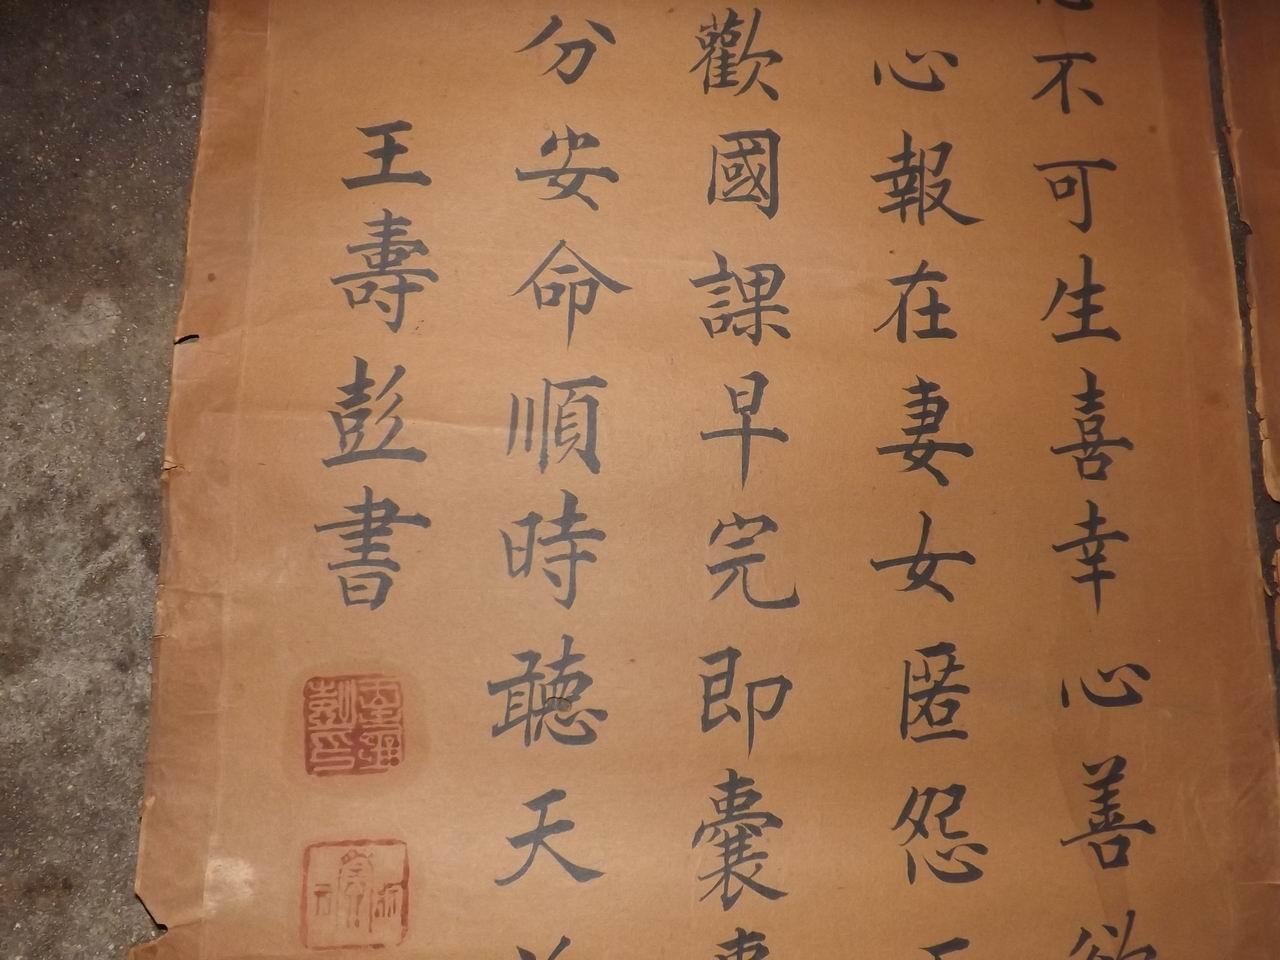 不可生喜幸心善欲
心報在妻女匿怨
歡國課早完即囊
分安命順時聽天
王壽彭書